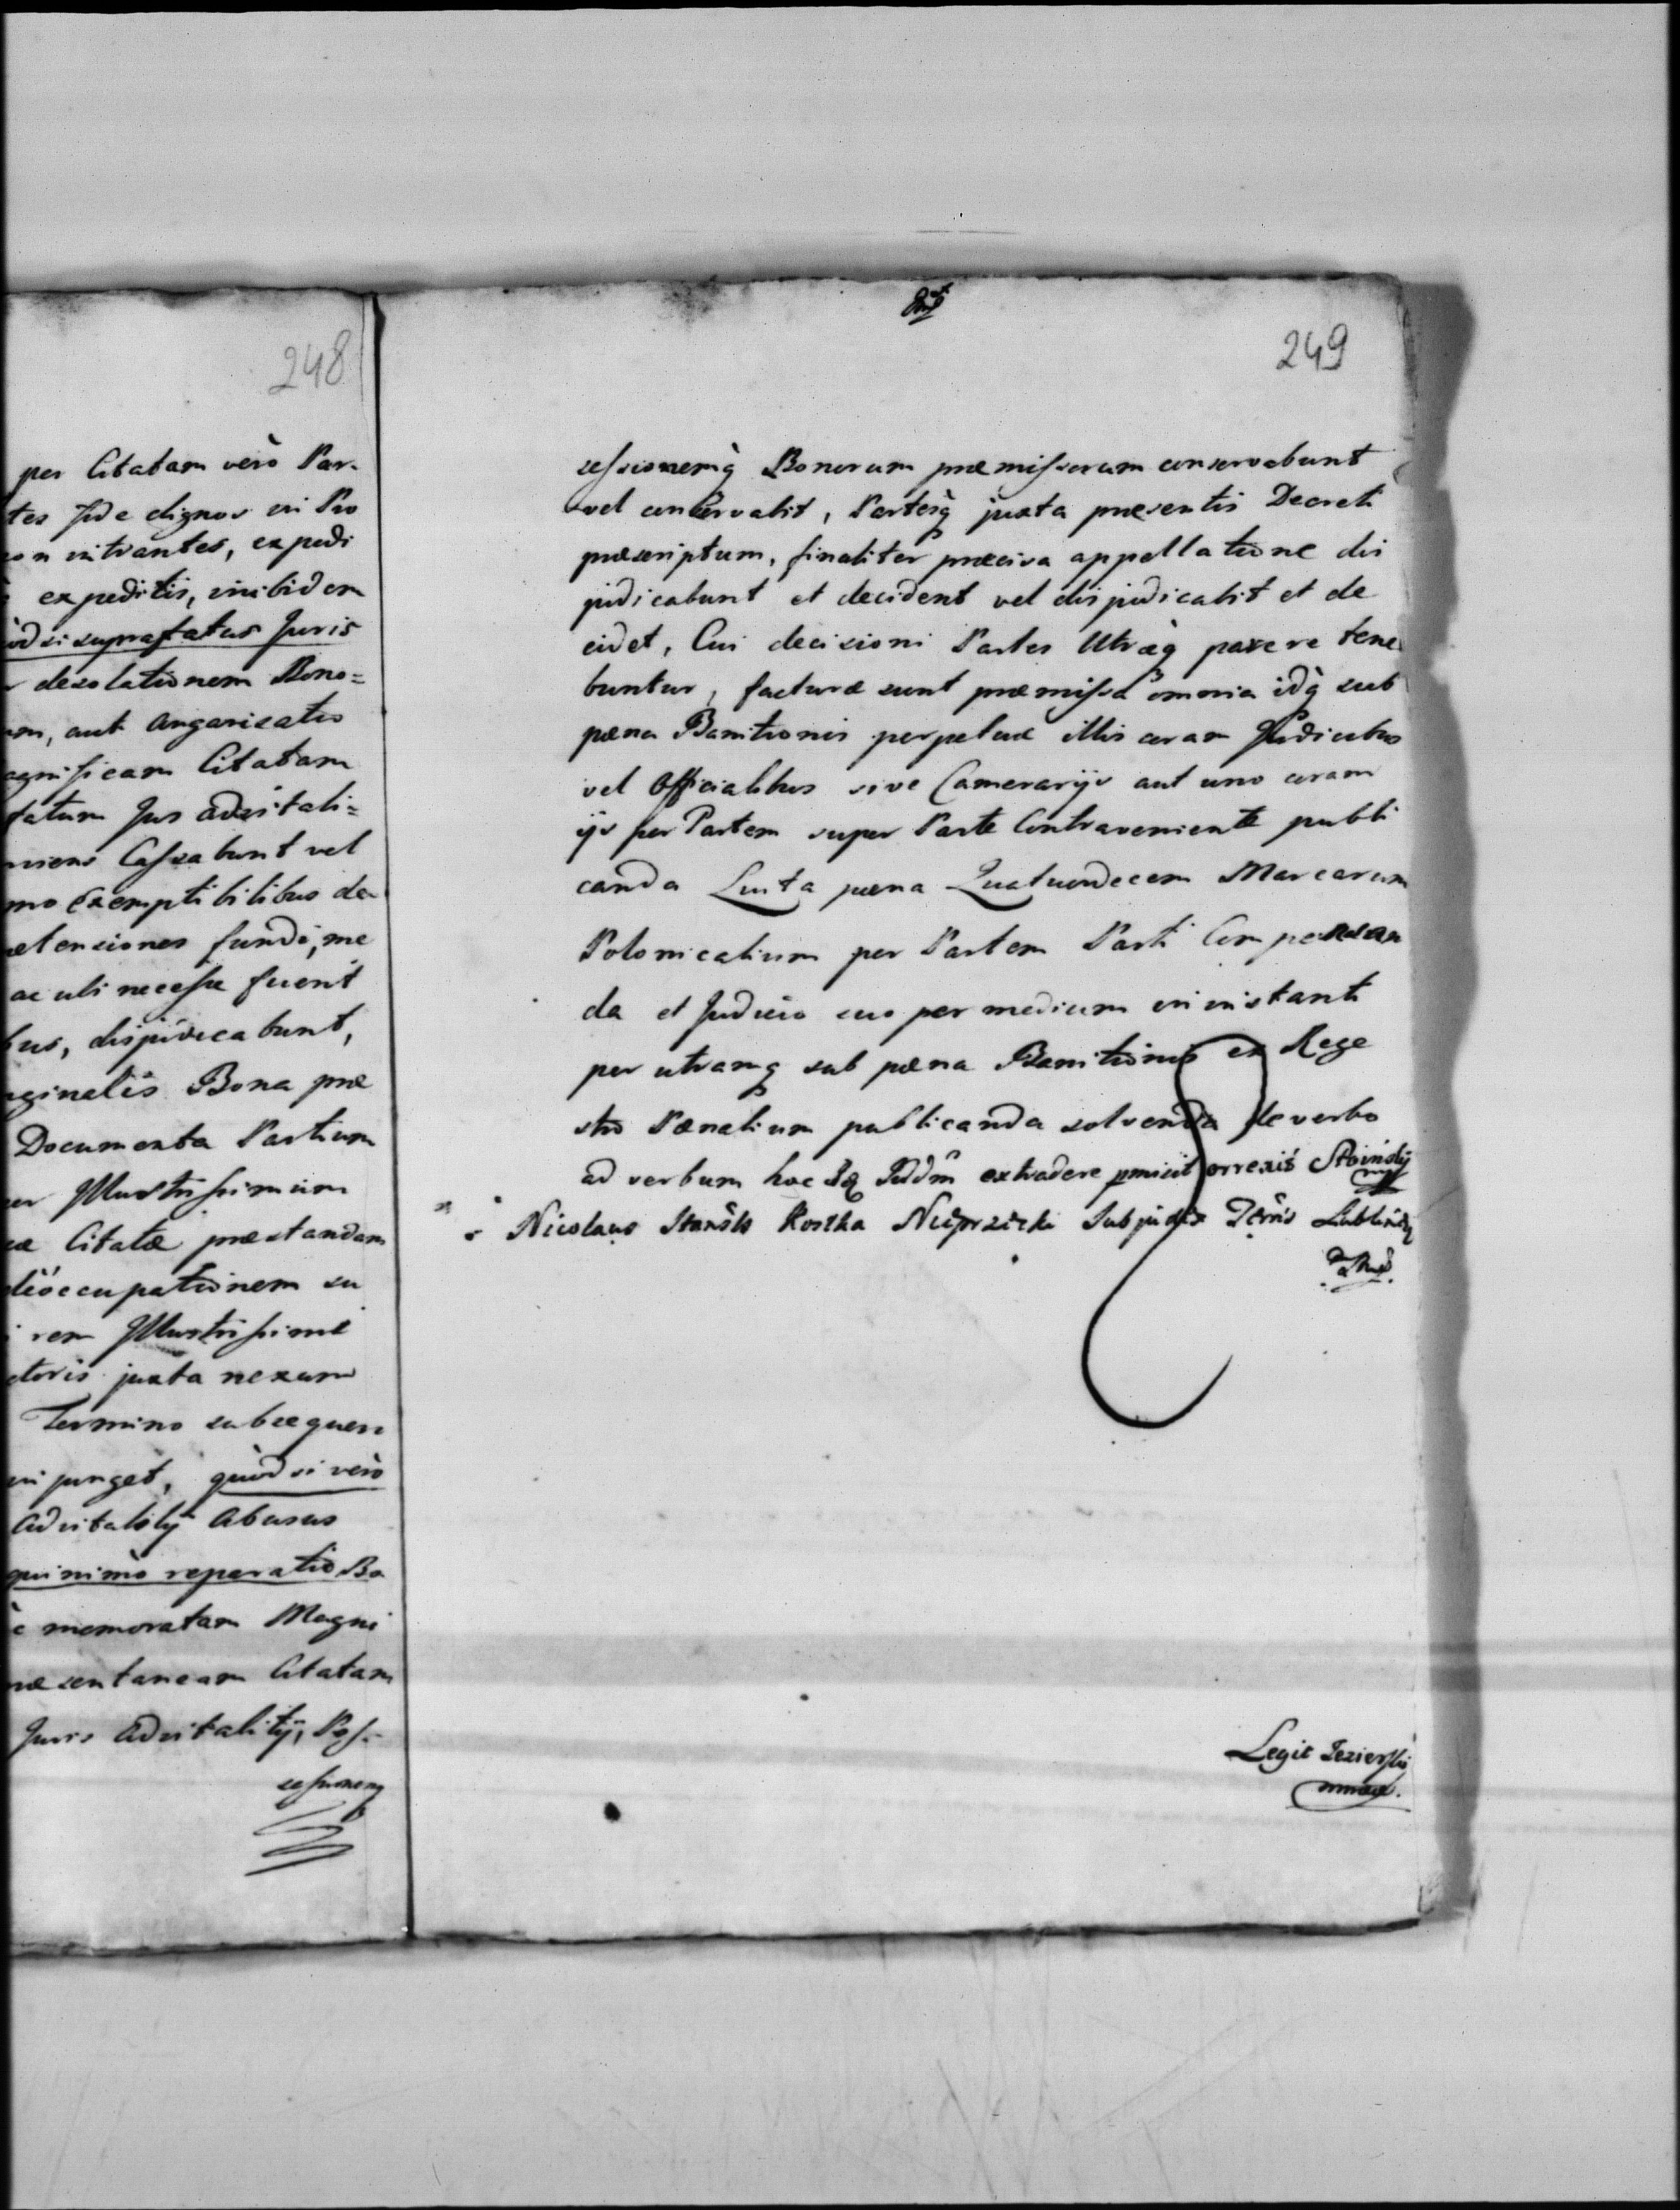 248
per Citatam verò Par-
tes fide dignos in Pro
non intrantes, expedi
expeditis, inibidem
uòd si suprafatus Juris
desolationem Bono=
um, aut angarisatio
agnificam Citatam
fatum Jus advitali=
niens Cassabunt vel
mo exemptibilibus de
etensiones fundi, me
ac ubi necesse fuerit
bus, disjudicabunt,
ginalis Bona præ
Documenta Partium
er Illustrissimum
æ Citatæ præstandam
occupationem su
rem Illustrissimi
ctoris juxta nexum
Termino subsequen
injunget, quòd si verò
advitalitij abusus
quinimò reparatio Bo
memoratam Magni
ræsentaneam Citatam
Juris Advitalitij, Pos-
sessionemq
249
sessionemq̀ Bonorum præmissorum conservabunt
vel conservabit, Partesq̀ juxta præsentis Decreti
præscriptum, finaliter præcisa appellatione dis
judicabunt et decident vel disjudicabit et de
cidet, Cui decisioni Partes Utræq̀ parere tene
buntur, facturæ sunt præmissa omnia idq̀ sub
pæna Banitionis perpetuæ illis coram Judicibus
vel Officialibus sive Camerarijs aut uno coram
ijs per Partem super Parte Contraveniente publi
canda Luita pæna Quatuordecem Marcarum
Polonicalium per Partem Parti Compensan
da et Judicio suo per medium in instanti
per utramq sub pæna Banitionis ex Rege
stro Pænalium publicanda solvenda de verbo
ad verbum hoc extradere pmisit Correxit Stoinsky
Nicolaus Stanśls Kostka Nieprzicki Subjudex Terris Lublinēn
Legit Jezierski